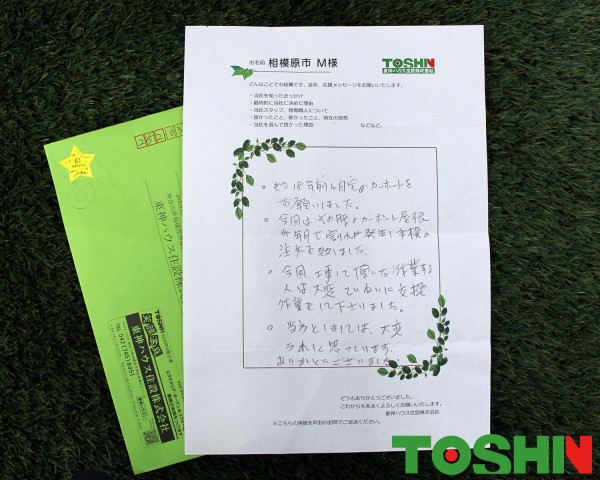 お名前 相模原市 M様
TOSHIN
東神ハウス住設株式会社
どんなことでも結構です。是非、応援メッセージをお願いいたします。
・当社を知ったきっかけ
・最終的に当社に決めた理由
・当社スタッフ、現場職人について
・良かったこと、悪かったこと、現在の感想
・当社を選んで良かった理由 などなど。
約18年前も自宅のカーポートを
お願いしました。
。今回はその際のカーポート屋根
が割れが発生し交換の
注文を致しました。
。今回、工事して頂いた作業する
人は大変ていねいに交換
作業をして下さいました。
。当方としましては、大変
うれしく思っています。
ありがとうございました。
どうもありがとうございました。
これからも末永くよろしくお願いいたします。
東神ハウス住設株式会社
※こちらの用紙を同封の封筒でご返送ください。
252
東神ハウス住設株式
TOSHIN
東神ハウス住設株式会社
TEL 042
TOSHIN